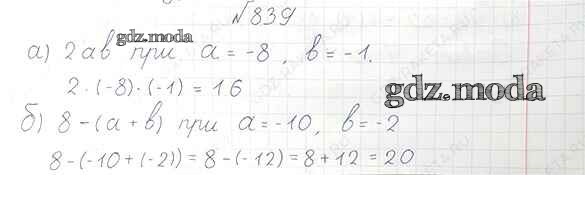 №839
а) 2ав при а = -8, в = -1.
2·(-8)·(-1) = 16
б) 8-(а+в) при а=-10, в=-2
8-(-10+(-2))=8-(-12)=8+12=20
gdz.moda
gdz.moda